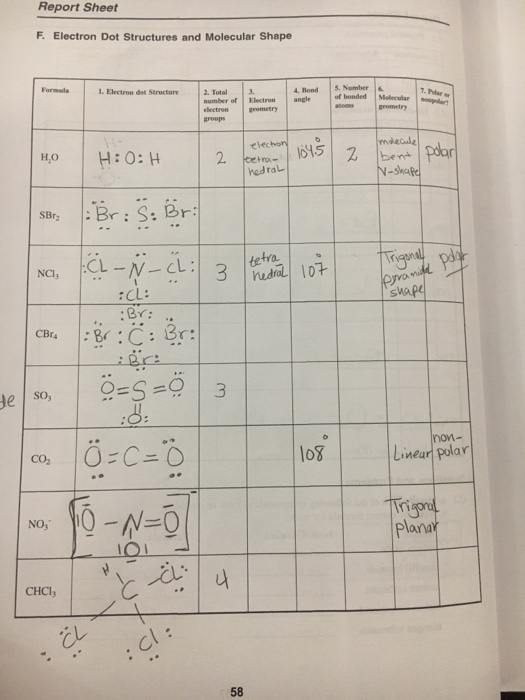 Report Sheet
F. Electron Dot Structures and Molecular Shape
Formula
1. Electron dot Structure
2. Total
number of
electron
groups
3.
Electron
geometry
4. Bond
angle
5. Number
of bonded
atoms
6.
Molecular
geometry
7. Polar or
nonpolar?
H₂O
H:O:H
2
electron
tetra-
hedral
104.5°
2
molecule
bent
V-shape
polar
SBr₂
:Br:S:Br:
NCl₃
:CL-N-CL:
:CL:
3
tetra
hedral
107°
Trigonal
pyramidal
shape
polar
CBr₄
:Br:
:Br:C:Br:
:Br:
SO₃
O=S=O
:O:
3
CO₂
O=C=O
108°
Linear
non-
polar
NO₃⁻
[|O-N=O]⁻
|O|
Trigonal
planar
CHCl₃
H
C
Cl:
:Cl
:Cl:
4
58